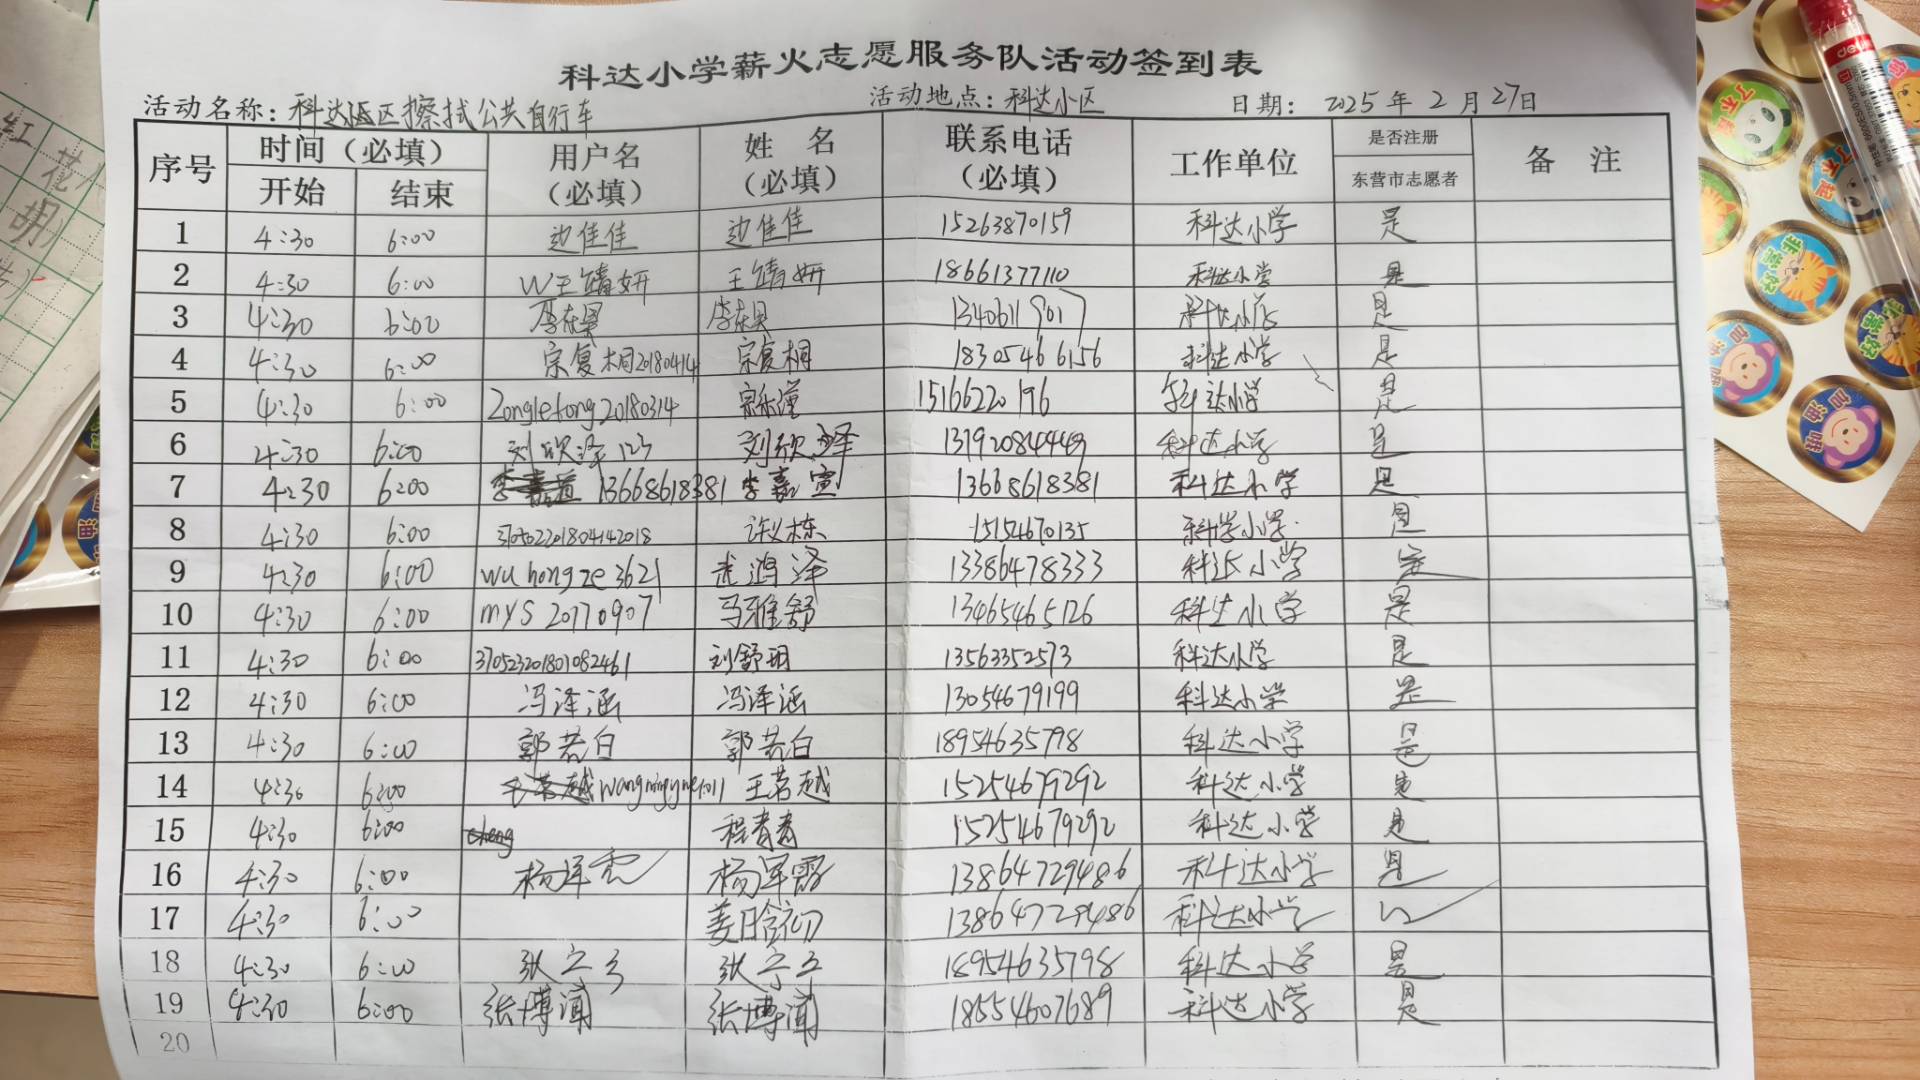 科达小学薪火志愿服务队活动签到表
活动名称：科达社区擦拭公共自行车 活动地点：科达小区 日期：2025年2月27日
序号 时间（必填） 用户名（必填） 姓名（必填） 联系电话（必填） 工作单位 是否注册 备注
开始 结束 东营市志愿者
1 4:30 6:00 边佳佳 边佳佳 15263870159 科达小学 是
2 4:30 6:00 W王婧妍 王婧妍 18661377110 科达小学 是
3 4:30 6:00 13406119017 科达小学 是
4 4:30 6:00 宗复桐20180414 宗复桐 18305466156 科达小学 是
5 4:30 6:00 Zongletong20180314 15166220196 科达小学 是
6 4:30 6:00 刘欣泽123 刘欣泽 13792084449 科达小学 是
7 4:30 6:00 13668618381 李嘉宣 13668618381 科达小学 是
8 4:30 6:00 370502201804142018 许义栋 15154670135 科学小学 是
9 4:30 6:00 wuhongze3621 武鸿泽 13386478333 科达小学 是
10 4:30 6:00 mys 20170907 马雅舒 13465465126 科达小学 是
11 4:30 6:00 370523201801082461 刘舒玥 13563352573 科达小学 是
12 4:30 6:00 冯泽涵 冯泽涵 13054679199 科达小学 是
13 4:30 6:00 郭若白 郭若白 18954635798 科达小学 是
14 4:30 6:00 王茗越 15254679292 科达小学 是
15 4:30 6:00 程青青 15254679292 科达小学 是
16 4:30 6:00 13864729486 科达小学 是
17 4:30 6:00 姜晗初 13864729486 科达小学
18 4:30 6:00 18954635798 科达小学 是
19 4:30 6:00 张博闻 张博闻 18554607689 科达小学 是
20
了不起
了不起
非常好
非常好
加油哦
加油哦
deli